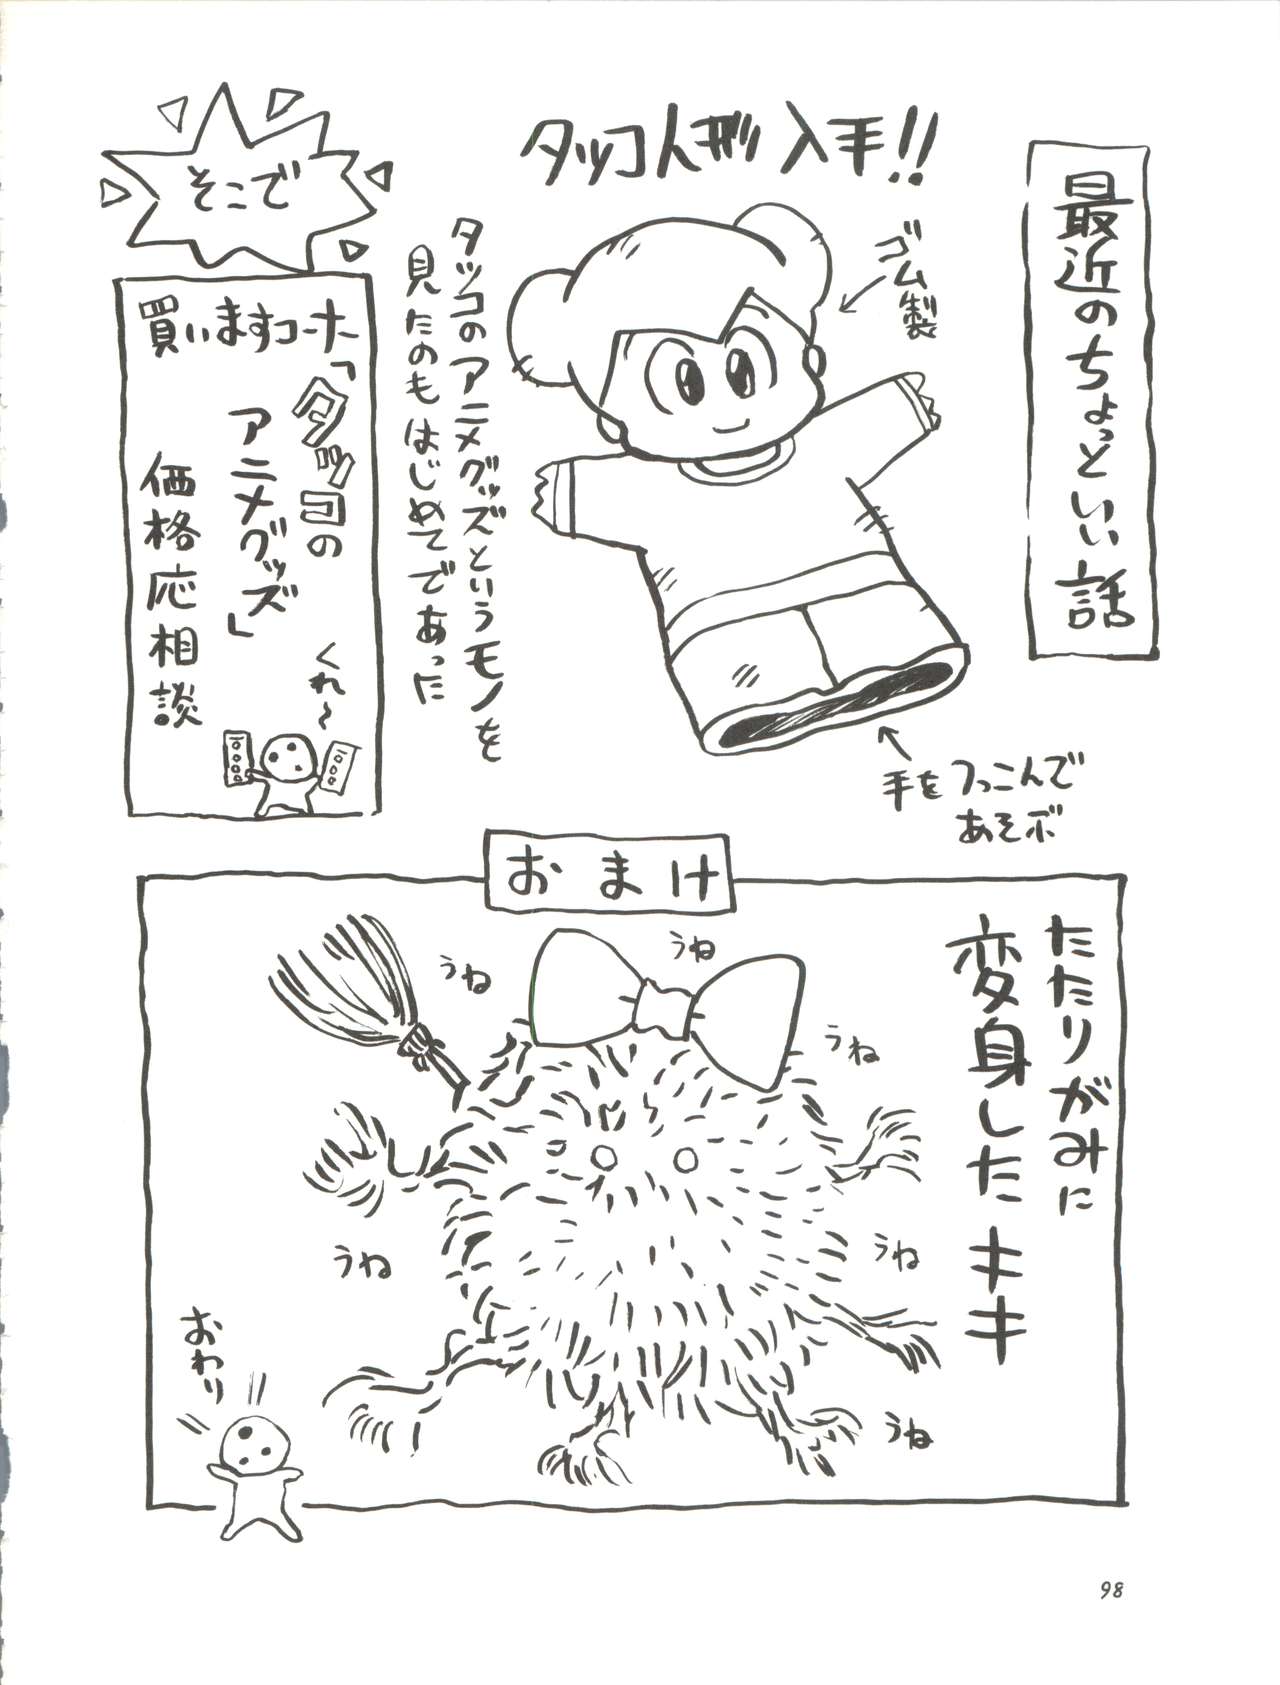 最近のちょっといい話
タッコ人形入手!!
ゴム製
手をつっこんで
あそぶ
タッコのアニメグッズというモノを
見たのもはじめてであった
そこで
買いますコーナー
「タッコの
アニメグッズ」
価格応相談
くれ〜
おまけ
たたりがみに
変身したキキ
うね
うね
うね
うね
うね
うね
おわり
98